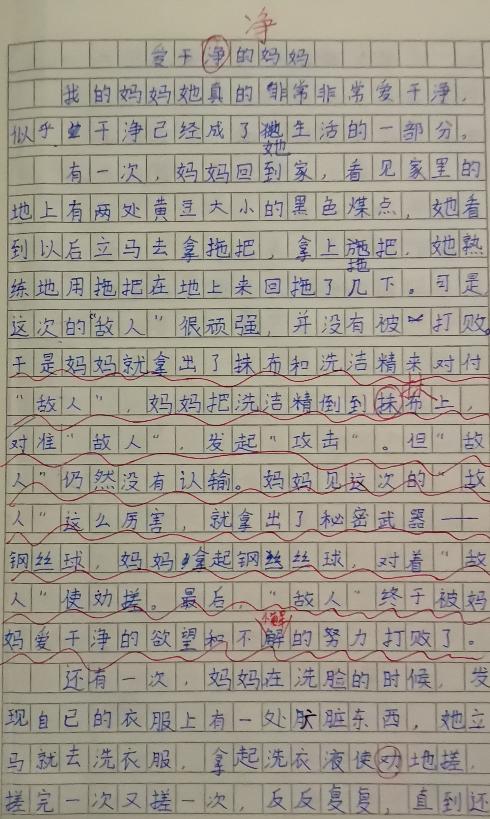 净
爱干净的妈妈
我的妈妈她真的非常非常爱干净，
似乎干净已经成了她生活的一部分。
有一次，妈妈回到家，看见家里的
地上有两处黄豆大小的黑色煤点，她看
到以后立马去拿拖把，拿上拖把，她熟
练地用拖把在地上来回拖了几下。可是
这次的“敌人”很顽强，并没有被打败。
于是妈妈就拿出了抹布和洗洁精来对付
“敌人”，妈妈把洗洁精倒到抹布上，
对准“敌人”，发起“攻击”。但“敌
人”仍然没有认输。妈妈见这次的“敌
人”这么厉害，就拿出了秘密武器——
钢丝球，妈妈拿起钢丝丝球，对着“敌
人”使劲搓。最后，“敌人”终于被妈
妈爱干净的欲望和不懈的努力打败了。
还有一次，妈妈在洗脸的时候，发
现自己的衣服上有一处肮脏东西，她立
马就去洗衣服，拿起洗衣液使劲地搓，
搓完一次又搓一次，反反复复，直到还